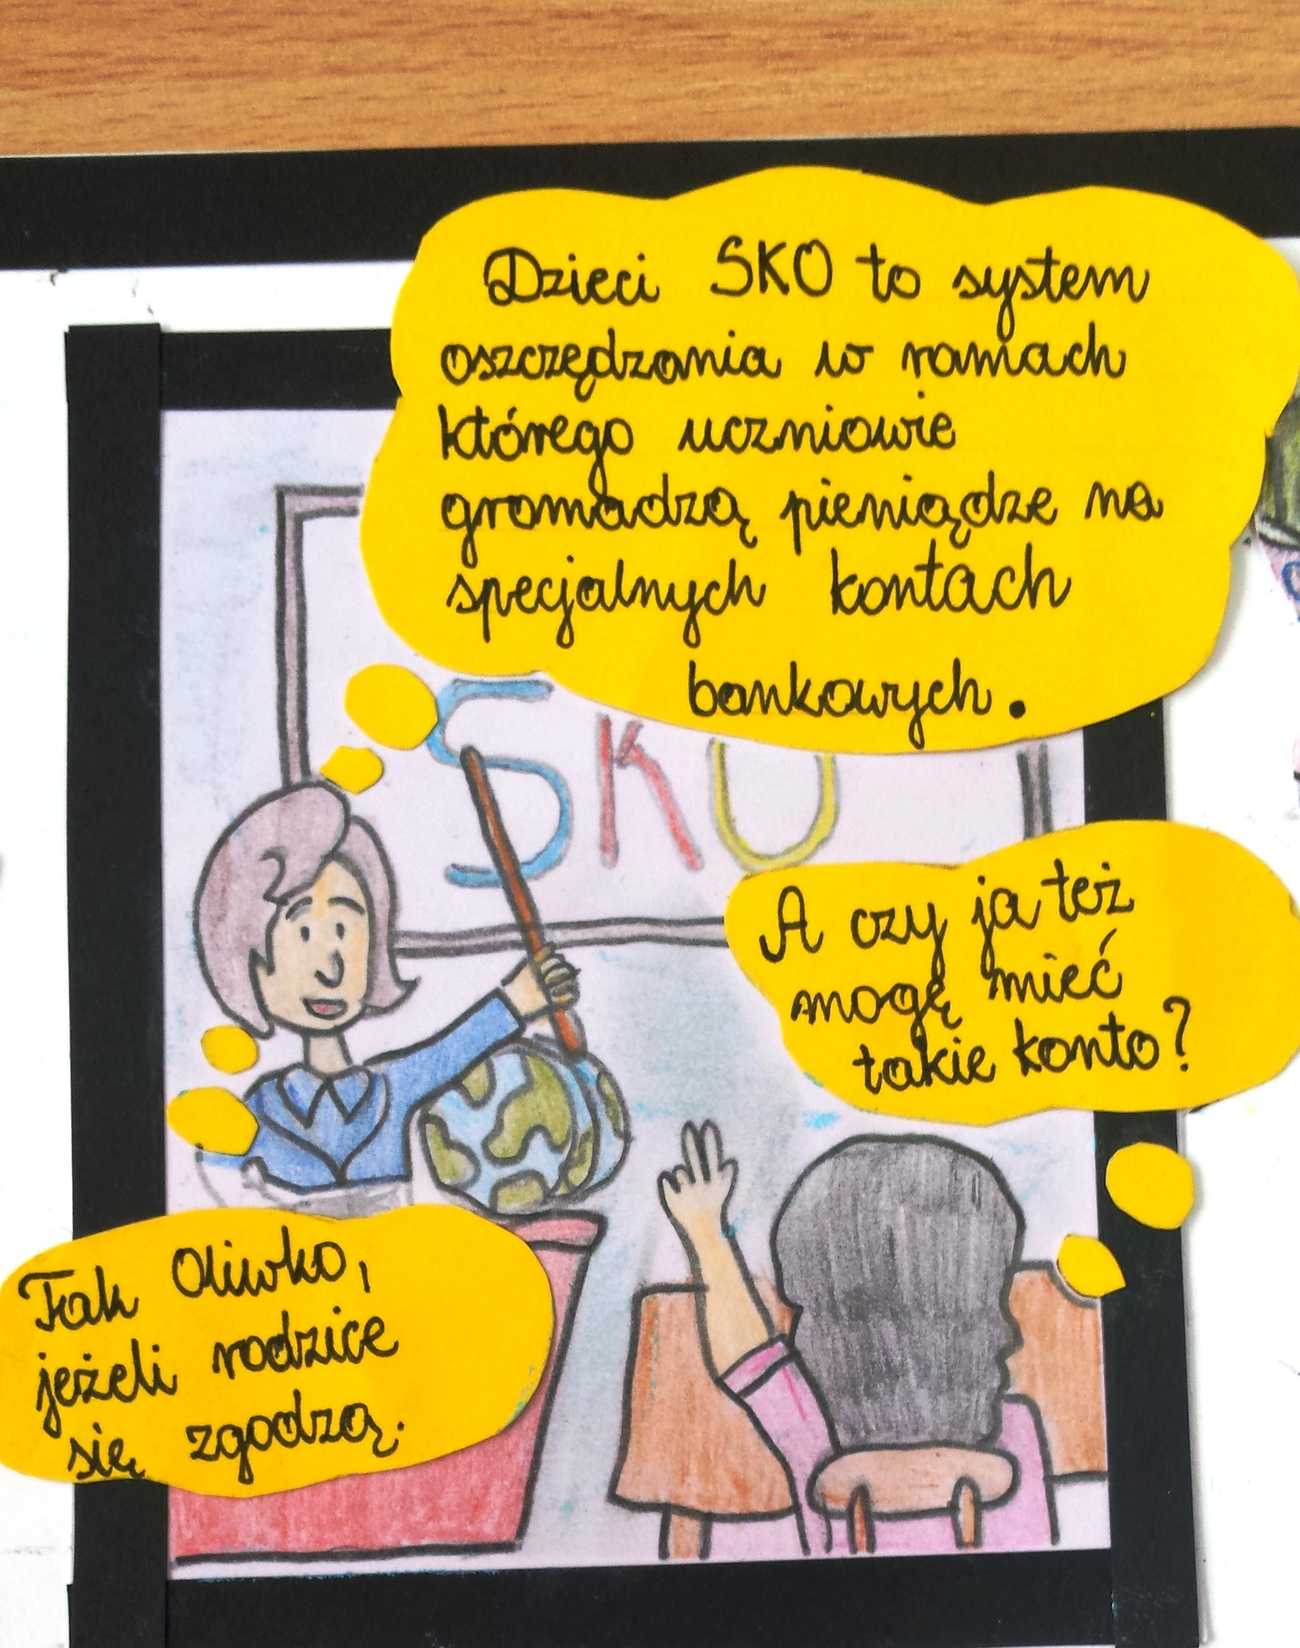 Dzieci SKO to system
oszczędzania w ramach
którego uczniowie
gromadzą pieniądze na
specjalnych kontach
bankowych.
SKO
A czy ja też
mogę mieć
takie konto?
Tak Oliwko,
jeżeli rodzice
się zgodzą.